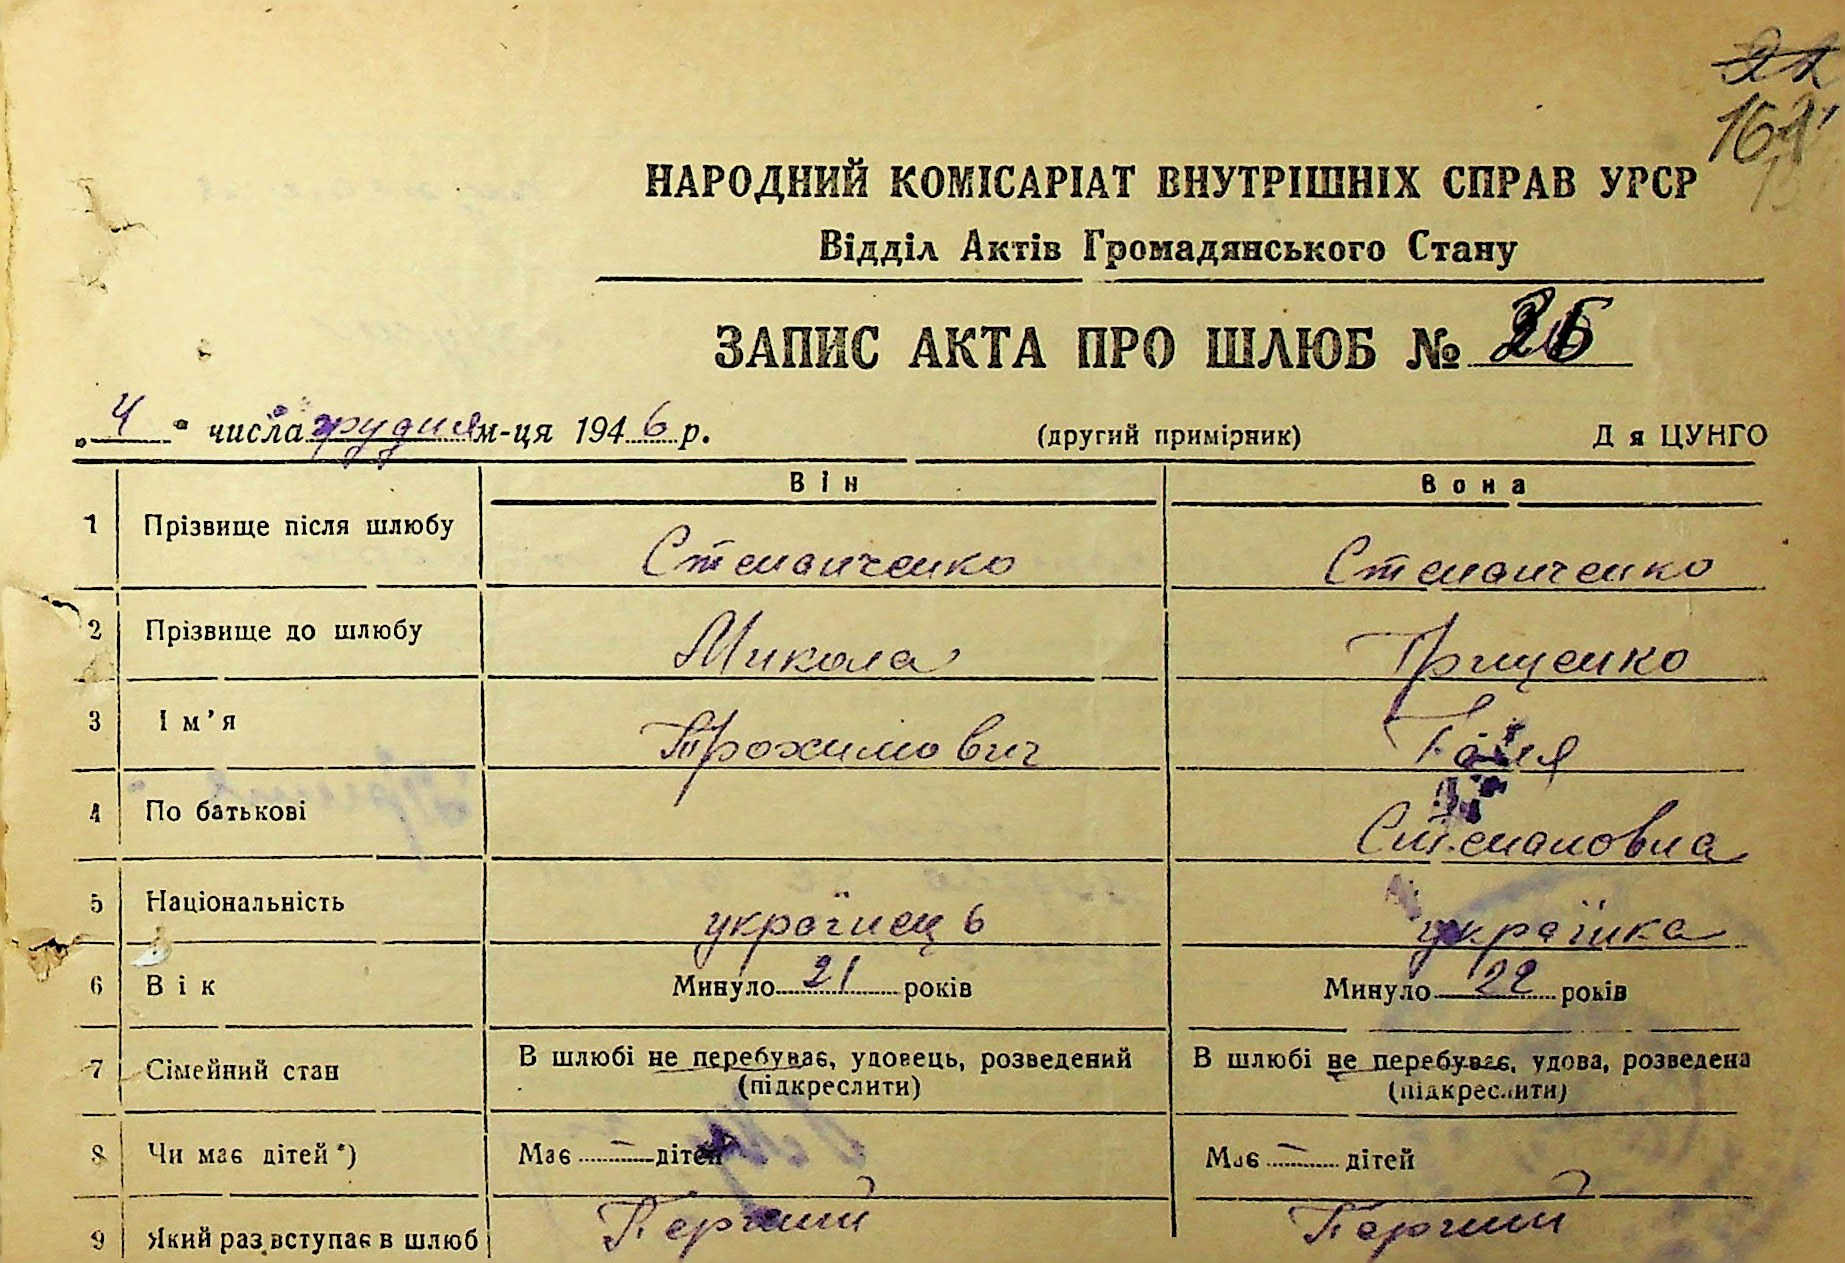 161
НАРОДНИЙ КОМІСАРІАТ ВНУТРІШНІХ СПРАВ УРСР
Відділ Актів Громадянського Стану
ЗАПИС АКТА ПРО ШЛЮБ №
„4“ числа грудня м-ця 1946 р. (другий примірник) Д я ЦУНГО
Він Вона
1 Прізвище після шлюбу Степанченко Степанченко
2 Прізвище до шлюбу Микола Грищенко
3 Ім'я Трохимович Галя
4 По батькові Степановна
5 Національність українець українка
6 Вік Минуло 21 років Минуло 22 років
7 Сімейний стан В шлюбі не перебуває, удовець, розведений В шлюбі не перебуває, удова, розведена
(підкреслити) (підкреслити)
8 Чи має дітей *) Має — дітей Має — дітей
9 Який раз вступає в шлюб Перший Перший